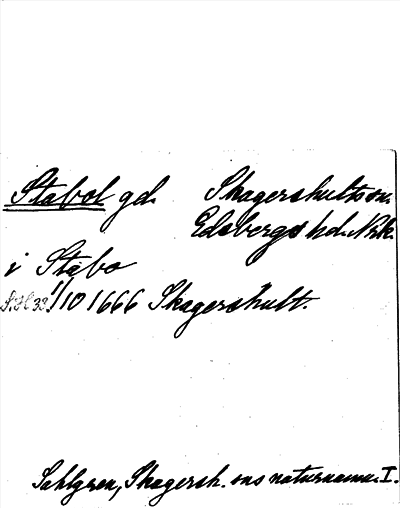 Stabol gd. Skagershults sn.
Edsbergs hd. Nrk.
i Stabo
1/10 1666 Skagershult.
Sahlgren, Skagersh. sns naturnamn. I.